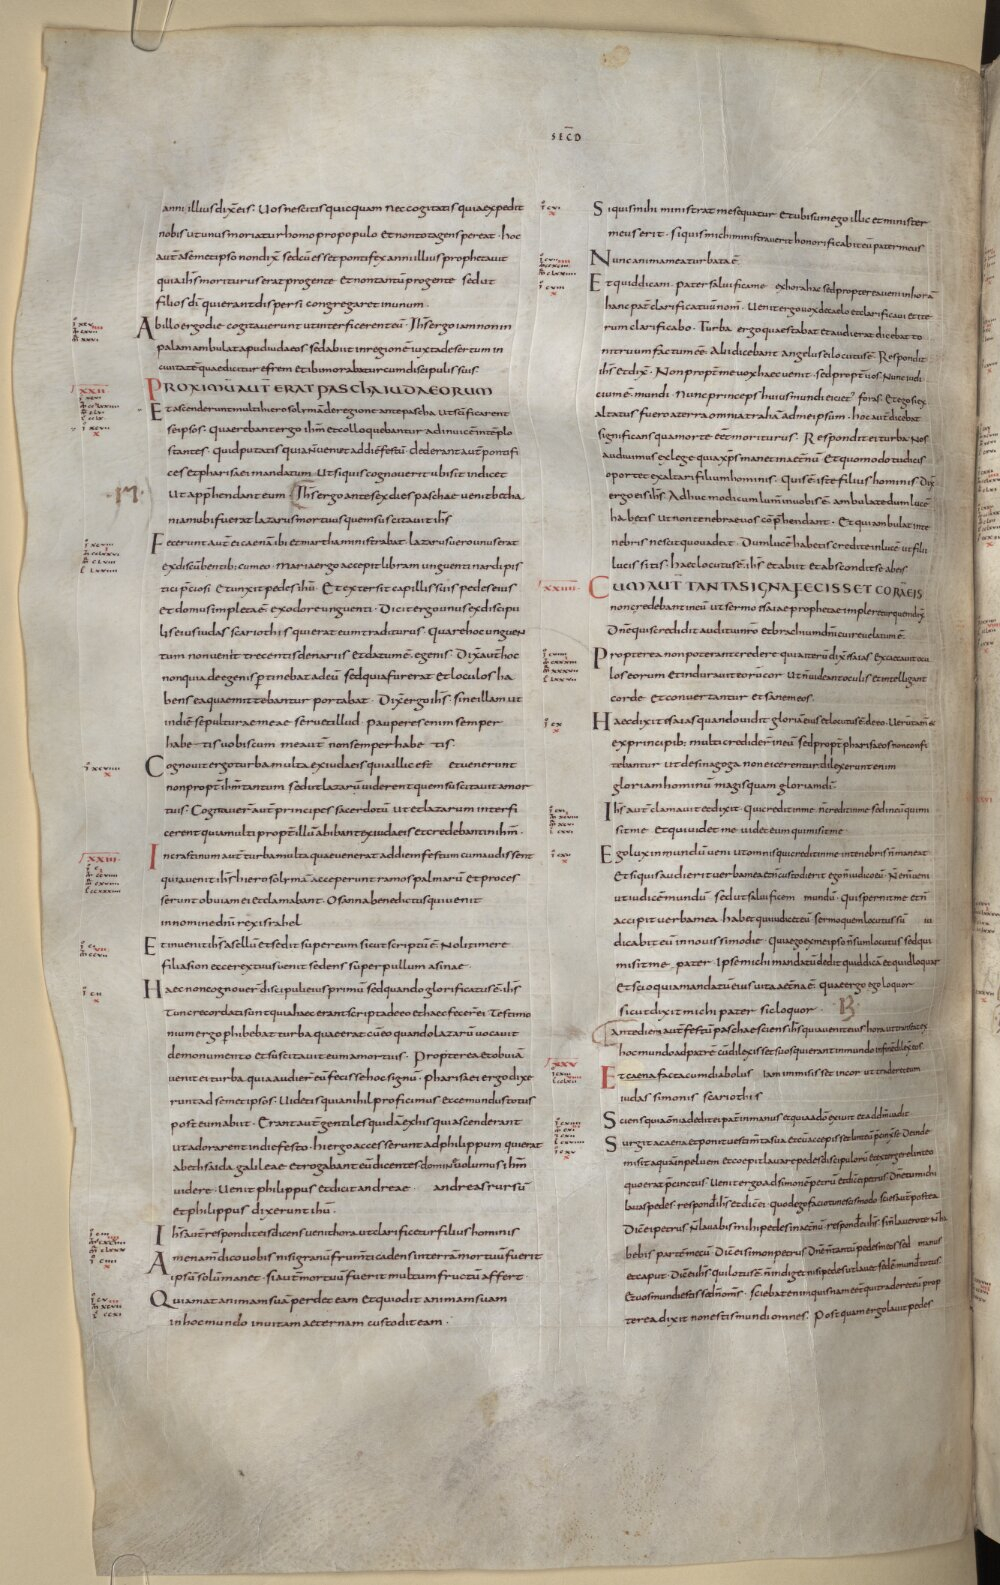 SECD
anni illius dix̄ eis · Uos nescitis quicquam nec cogitatis quia expedit
nobis ut unus moriatur homo pro populo et non tota gens pereat · hoc
aut̄ a semet ipso non dix̄ · sed cū esset pontifex anni illius prophetauit
quia ih̄s moriturus erat pro gente et non tantū pro gente sed ut
filios dī qui erant dispersi congregaret in unum ·
Ab illo ergo die cogitauerunt ut interficerent eū · Ih̄s ergo iam non in
palam ambulat apud iudaeos sed abiit in regionē iuxta desertum in
ciuitatē quae dicitur efrem et ibi morabatur cum discipulis suis
XXII
PROXIMŪ AUT̄ ERAT PASCHA IUDAEORUM
Et ascenderunt multi hierosolymā de regione ante pascha ut sc̄ificarent
se ipsos · Quaerebant ergo ih̄m et colloquebantur ad inuicē in tēplo
stantes · Quid putatis quia ñ uenit ad diē festū · dederant aut̄ pontifi
ces et pharisaei mandatum Ut si quis cognouerit ubi sit indicet
Ut appr̄hendant eum · Ih̄s ergo ante sex dies paschae uenit betha
nia ubi fuerat lazarus mortuus quem suscitauit ih̄s
Fecerunt aut̄ ei caenā ibi et martha ministrabat · lazarus uero unus erat
ex discūbentib; cum eo · Maria ergo accepit libram unguenti nardi pis
tici p̄ciosi et unxit pedes ih̄u · Et extersit capillis suis pedes eius
et domus impleta ē ex odore unguenti · Dicit ergo unus ex discipu
lis eius iudas scariothis qui erat eum traditurus · Quare hoc unguen
tum non uenit trecentis denariis et datum ē egenis · Dix̄ aut̄ hoc
non quia de egenis p̄tinebat ad eū sed quia fur erat et loculos ha
bens ea quae mittebantur portabat · Dix̄ ergo ih̄s · sine illam ut
in diē sepulturae meae seruet illud · pauperes enim semper
habe tis uobiscum me aut̄ non semper habe tis ·
Cognouit ergo turba multa ex iudaeis quia illic est et uenerunt
non propt̄ ih̄m tantum sed ut lazarū uiderent quem suscitauit a mor
tuis · Cogitauer̄ aut̄ principes sacerdotū ut et lazarum interfi
cerent quia multi propt̄ illū abibant ex iudaeis et credebant in ih̄m ·
XXIII
In crastinum aut̄ turba multa quae uenerat ad diem festum cum audissent
quia uenit ih̄s hierosolymā acceperunt ramos palmarū et proces
serunt obuiam ei et clamabant · Osanna benedictus qui uenit
in nomine dn̄i rex israhel
Et inuenit ih̄s asellū et sedit super eum sicut scriptū ē Noli timere
filia sion ecce rex tuus uenit sedens sup̄er pullum asinae ·
Haec non cognouer̄ discipuli eius primū sed quando glorificatus ē ih̄s
tunc recordati sunt quia haec erant scripta de eo et haec fecer̄ ei Testimo
nium ergo p̄hibebat turba quae erat cū eo quando lazarū uocauit
de monumento et suscitauit eum a mortuis · Propterea et obuiā
uenit ei turba quia audier̄ eū fecisse hoc signū · Pharisaei ergo dixe
runt ad semet ipsos · Uidetis quia nihil proficimus ecce mundus totus
post eum abiit · Erant aut̄ gentiles quidā ex his qui ascenderant
ut adorarent in die festo · hi ergo accesserunt ad philippum qui erat
a bethsaida galileae et rogabant eū dicentes · domine uolumus ih̄m
uidere · Uenit philippus et dicit andreae · andreas rursū
et philippus dixerunt ih̄u ·
Ih̄s aut̄ respondit eis dicens uenit hora ut clarificetur filius hominis
Amen am̄ dico uobis nisi granū frum̄ti cadens in terrā mortuū fuerit
ipsū solū manet · si aut̄ mortuū fuerit multum fructū affert ·
Qui amat animam suā perdet eam et qui odit animam suam
in hoc mundo in uitam aeternam custodit eam ·
Si quis mihi ministrat me sequatur et ubi sum ego illic et minister
meus erit · si quis michi ministrauerit honorificabit eū pater meus
Nunc anima mea turbata ē ·
Et quid dicam · pater saluifica me ex hora hac sed propterea ueni in horā
hanc pat̄ clarifica tuū nom̄ · Uenit ergo uox de caelo et clarificaui et ite
rum clarificabo · Turba ergo quae stabat et audierat dicebat to
nitruum factum ēē · Alii dicebant angelus ei locutus ē · Respondit
ih̄s et dix̄ · Non propt̄ me uox haec uenit · sed propt̄ uos · Nunc iudi
cium ē · mundi · Nunc princeps huius mundi eicietr̄ foras · Et ego si ex
altatus fuero a terra omnia trahā ad me ipsum · hoc aut̄ dicebat
significans qua morte eēt moriturus · Respondit ei turba · Nos
audiuimus ex lege quia xp̄s manet in aet̄nū et quomodo tu dicis
oportet exaltari filium hominis · Quis ē iste filius hominis Dix̄
ergo eis ih̄s · Adhuc modicum lum̄ in uobis ē ambulate dum lucē
habetis ut non tenebrae uos cōp̄hendant · Et qui ambulat in te
nebris nescit quo uadat · Dum lucē habetis credite in lucē ut filii
lucis sitis · haec locutus ē ih̄s et abiit et abscondit se ab eis
XXIIII
CUM AUT̄ TANTA SIGNA FECISSET CORĀ EIS
non credebant in eū ut sermo isaiae prophetae impleretur quem dix̄
Dn̄e quis credidit auditui nr̄o et brachium dn̄i cui reuelatum ē ·
Propterea non poterant credere quia iterū dix̄ isaias · Excaecauit ocu
los eorum et indurauit eorū cor Ut ñ uideant oculis et intelligant
corde et conuertantur et sanem eos ·
Haec dixit isaias quando uidit gloriā eius et locutus ē de eo · Uer̄ū tam̄ &
ex principib; multi credider̄ in eū sed propt̄ pharisaeos non confi
tebantur ut de sinagoga non eicerentur dilexerunt enim
gloriam hominū magis quam gloriam dī ·
Ih̄s aut̄ clamauit et dixit · Qui credit in me ñ credit in me sed in eū qui mi
sit me et qui uidet me uidet eum qui misit me
Ego lux in mundū ueni ut omnis qui credit in me in tenebris ñ maneat
Et si quis audierit uerba mea et ñ custodierit ego ñ iudico eū Ñ ēn̄ ueni
ut iudicē mundū sed ut saluificem mundū · Qui spernit me et ñ
accipit uerba mea habet qui iudicet eū sermo quem locutus sū iu
dicabit eū in nouissimo die · Quia ego ex me ipso ñ sum locutus sed qui
misit me pater Ipse michi mandatū dedit quid dicā et quid loquar
Et scio quia mandatū eius uita aet̄na ē · quae ergo ego loquor
sicut dixit michi pater sic loquor ·
Ante diem aut̄ festū paschae sciens ih̄s quia uenit eius hora ut transeat ex
hoc mundo ad patrē cū dilexisset suos qui erant in mundo in finē dilex̄ eos ·
XXV
Et caena facta cum diabolus iam immisisset in cor ut traderet eum
iudas simonis scariothis
Sciens quia om̄ia dedit ei pat̄ in manus et quia a dō exiuit et ad dm̄ uadit
Surgit a caena et ponit uestim̄ta sua et cū accepisset linteū p̄cinx̄ se · Deinde
misit aquā in peluem et coepit lauare pedes discipulorū et extergere linteo
quo erat p̄cinctus · Uenit ergo ad simonē petrū et dic̄ ei petrus · Dn̄e tu michi
lauas pedes · respond̄ ih̄s et dic̄ ei · quod ego facio tu nescis modo scies aut̄ postea
Dic̄ ei petrus · Ñ lauabis mihi pedes in aet̄nū · respond̄ ei ih̄s · si ñ lauero te ñ ha
bebis partē mecū Dic̄ ei simon petrus · Dn̄e ñ tantū pedes meos sed manus
et caput · Dic̄ ei ih̄s · Qui lotus ē ñ indiget nisi pedes ut lauet sed ē mund̄ totus ·
Et uos mundi estis sed ñ om̄s · sciebat enim quisnam eēt qui traderet eū prop
terea dixit non estis mundi omnes · Postquam ergo lauit pedes